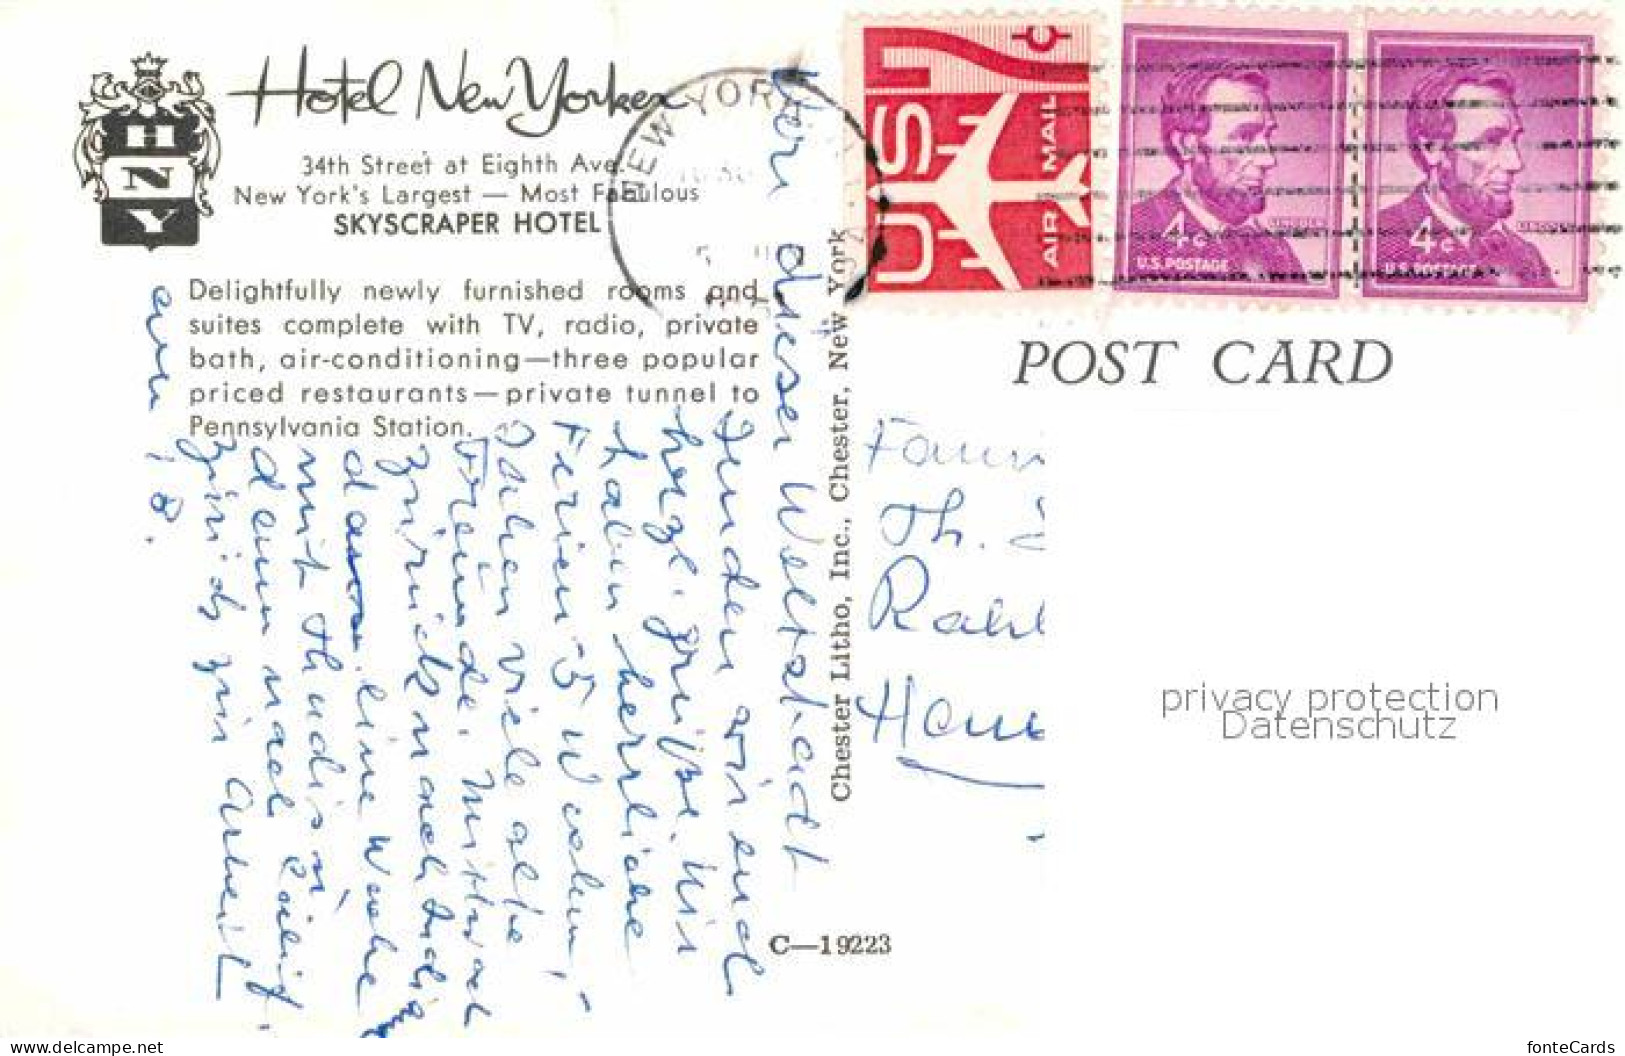 Hotel New Yorker
34th Street at Eighth Ave.
New York's Largest — Most Fabulous
SKYSCRAPER HOTEL
HNY
Delightfully newly furnished rooms and
suites complete with TV, radio, private
bath, air-conditioning—three popular
priced restaurants—private tunnel to
Pennsylvania Station.
NEW YORK
US
AIR MAIL
7c
4c
LINCOLN
U.S. POSTAGE
4c
U.S. POSTAGE
POST CARD
Chester Litho, Inc., Chester, New York
C—19223
dieser Weltstadt
senden wir euch
herzl. Grüße. Wir
haben herrliche
Ferien - 5 Wochen,
sahen viele alte
Freunde. Mittwoch
zurück nach
eine Woche
mit
dann nach
zurück zur Arbeit
am 18.
Th.
privacy protection
Datenschutz
www.delcampe.net
fonteCards